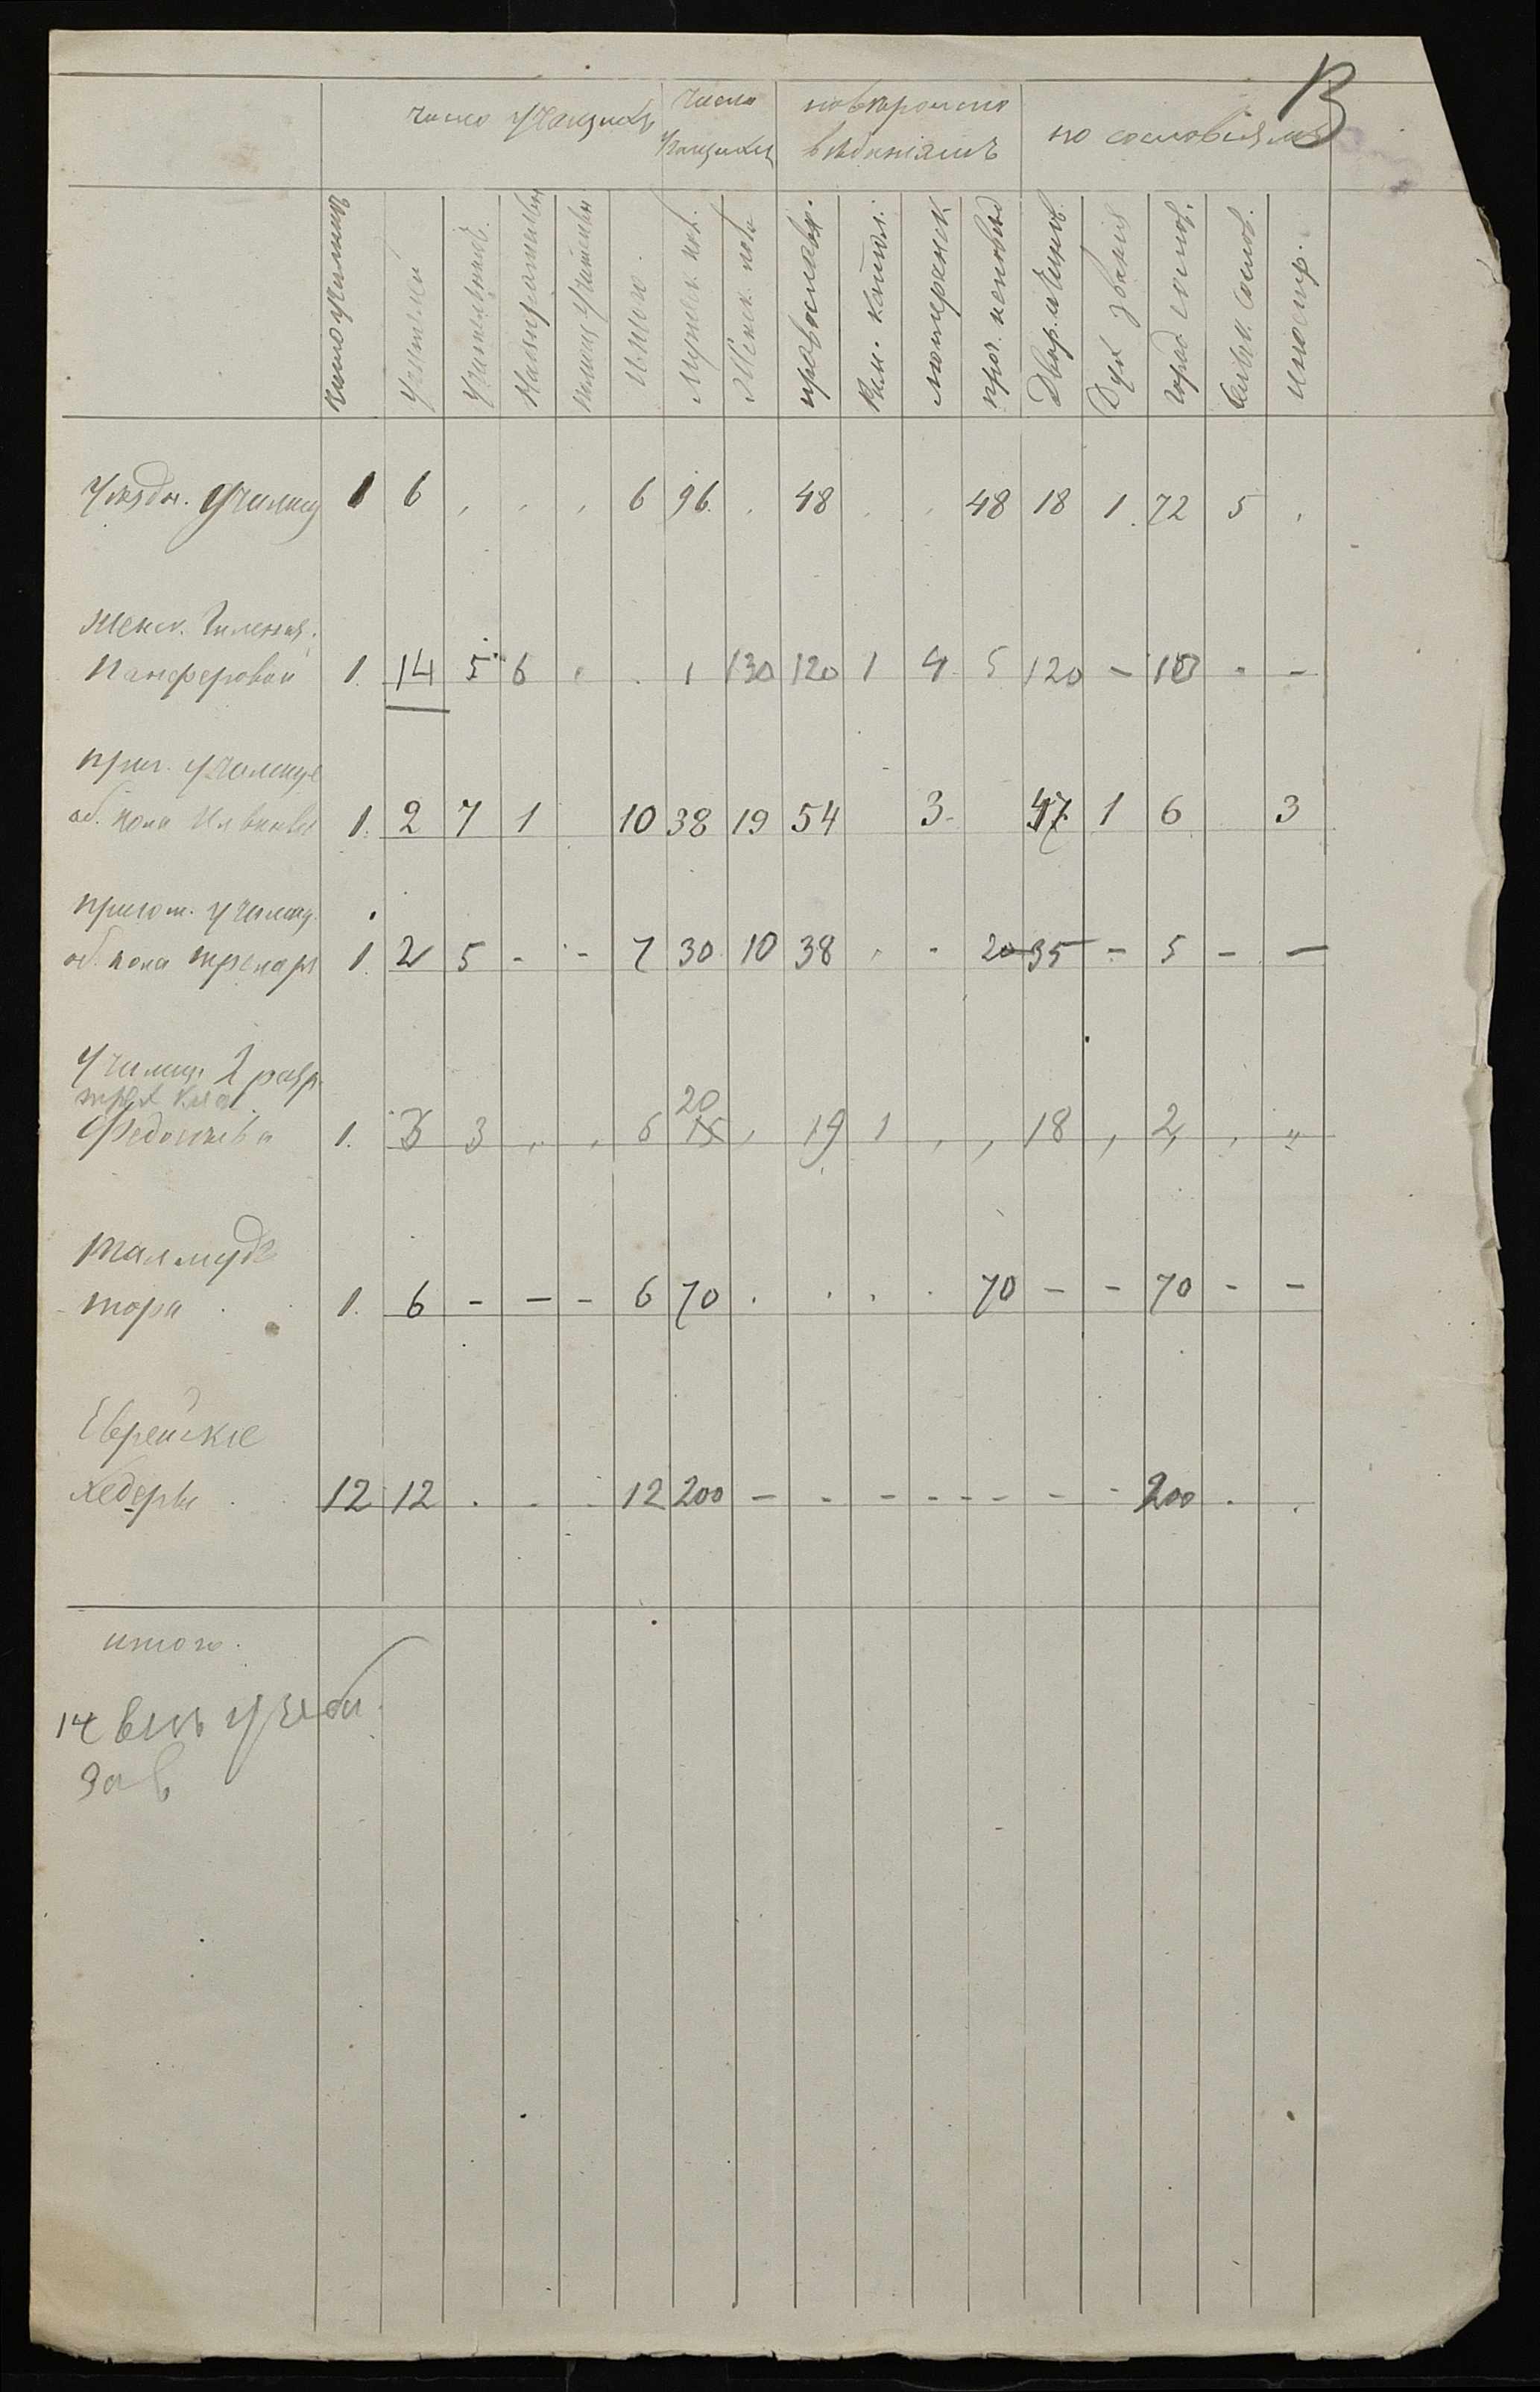 число учащихъ число по вѣроиспо по сословіямъ В
учащихся вѣданіямъ
Число училищъ Учителей Учительницъ Итого Мужск. пол. Женск. пола православн. Рим. катол. лютеранск проч. исповѣд Двор. и Чинов. Дух званія город сослов. Сельск. Сослов. Иностр.
Уѣздн. Училищ 1 6 , , , 6 96 . 48 . . 48 18 1. 72 5 .
Женск. Гимназія.
Панферовой 1. 14 5 6 . . 1 130 120 1 4 5 120 - 10 - -
приг. училище
об. пола 1. 2 7 1 10 38 19 54 3 47 1 6 3
пригот. училищ.
об. пола 1. 2 5 - - 7 30 10 38 . - 2 35 - 5 - -
Училищ. 2 разр.
Федосѣева 1. 3 3 , , 6 20 , 19 1 , , 18 , 2 , „
Талмудъ
тора 1. 6 - - - 6 70 . . . . 70 - - 70 - -
Еврейскіе
хедеры 12 12 . - - 12 200 - - - - - - - 200 . .
итого.
14 учебн.
Зав